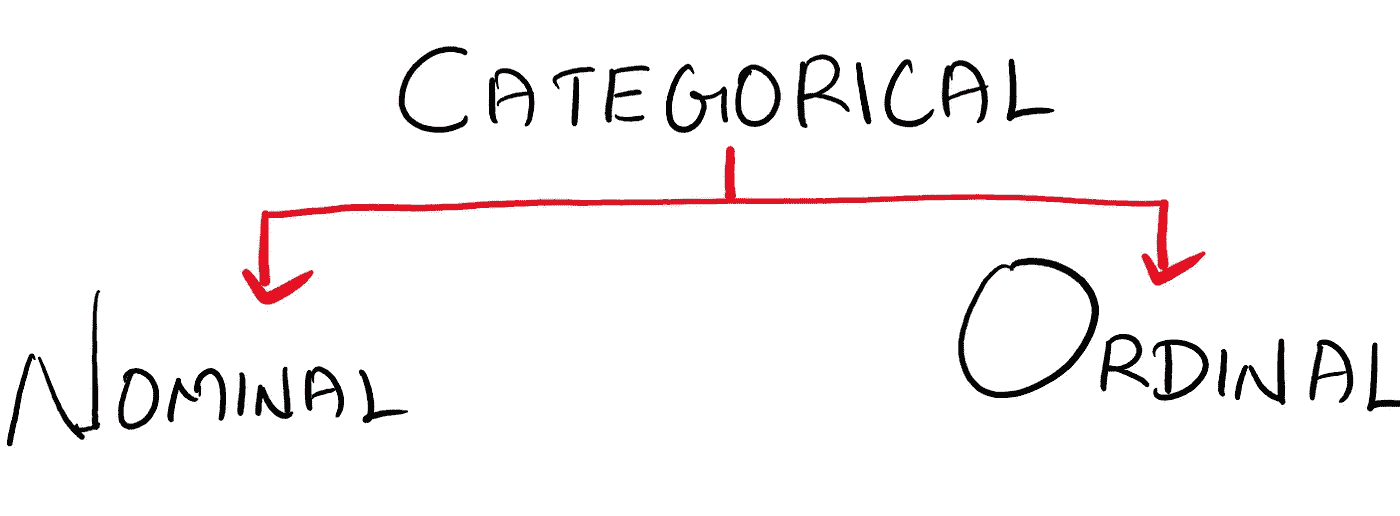 CATEGORICAL
NOMINAL
ORDINAL